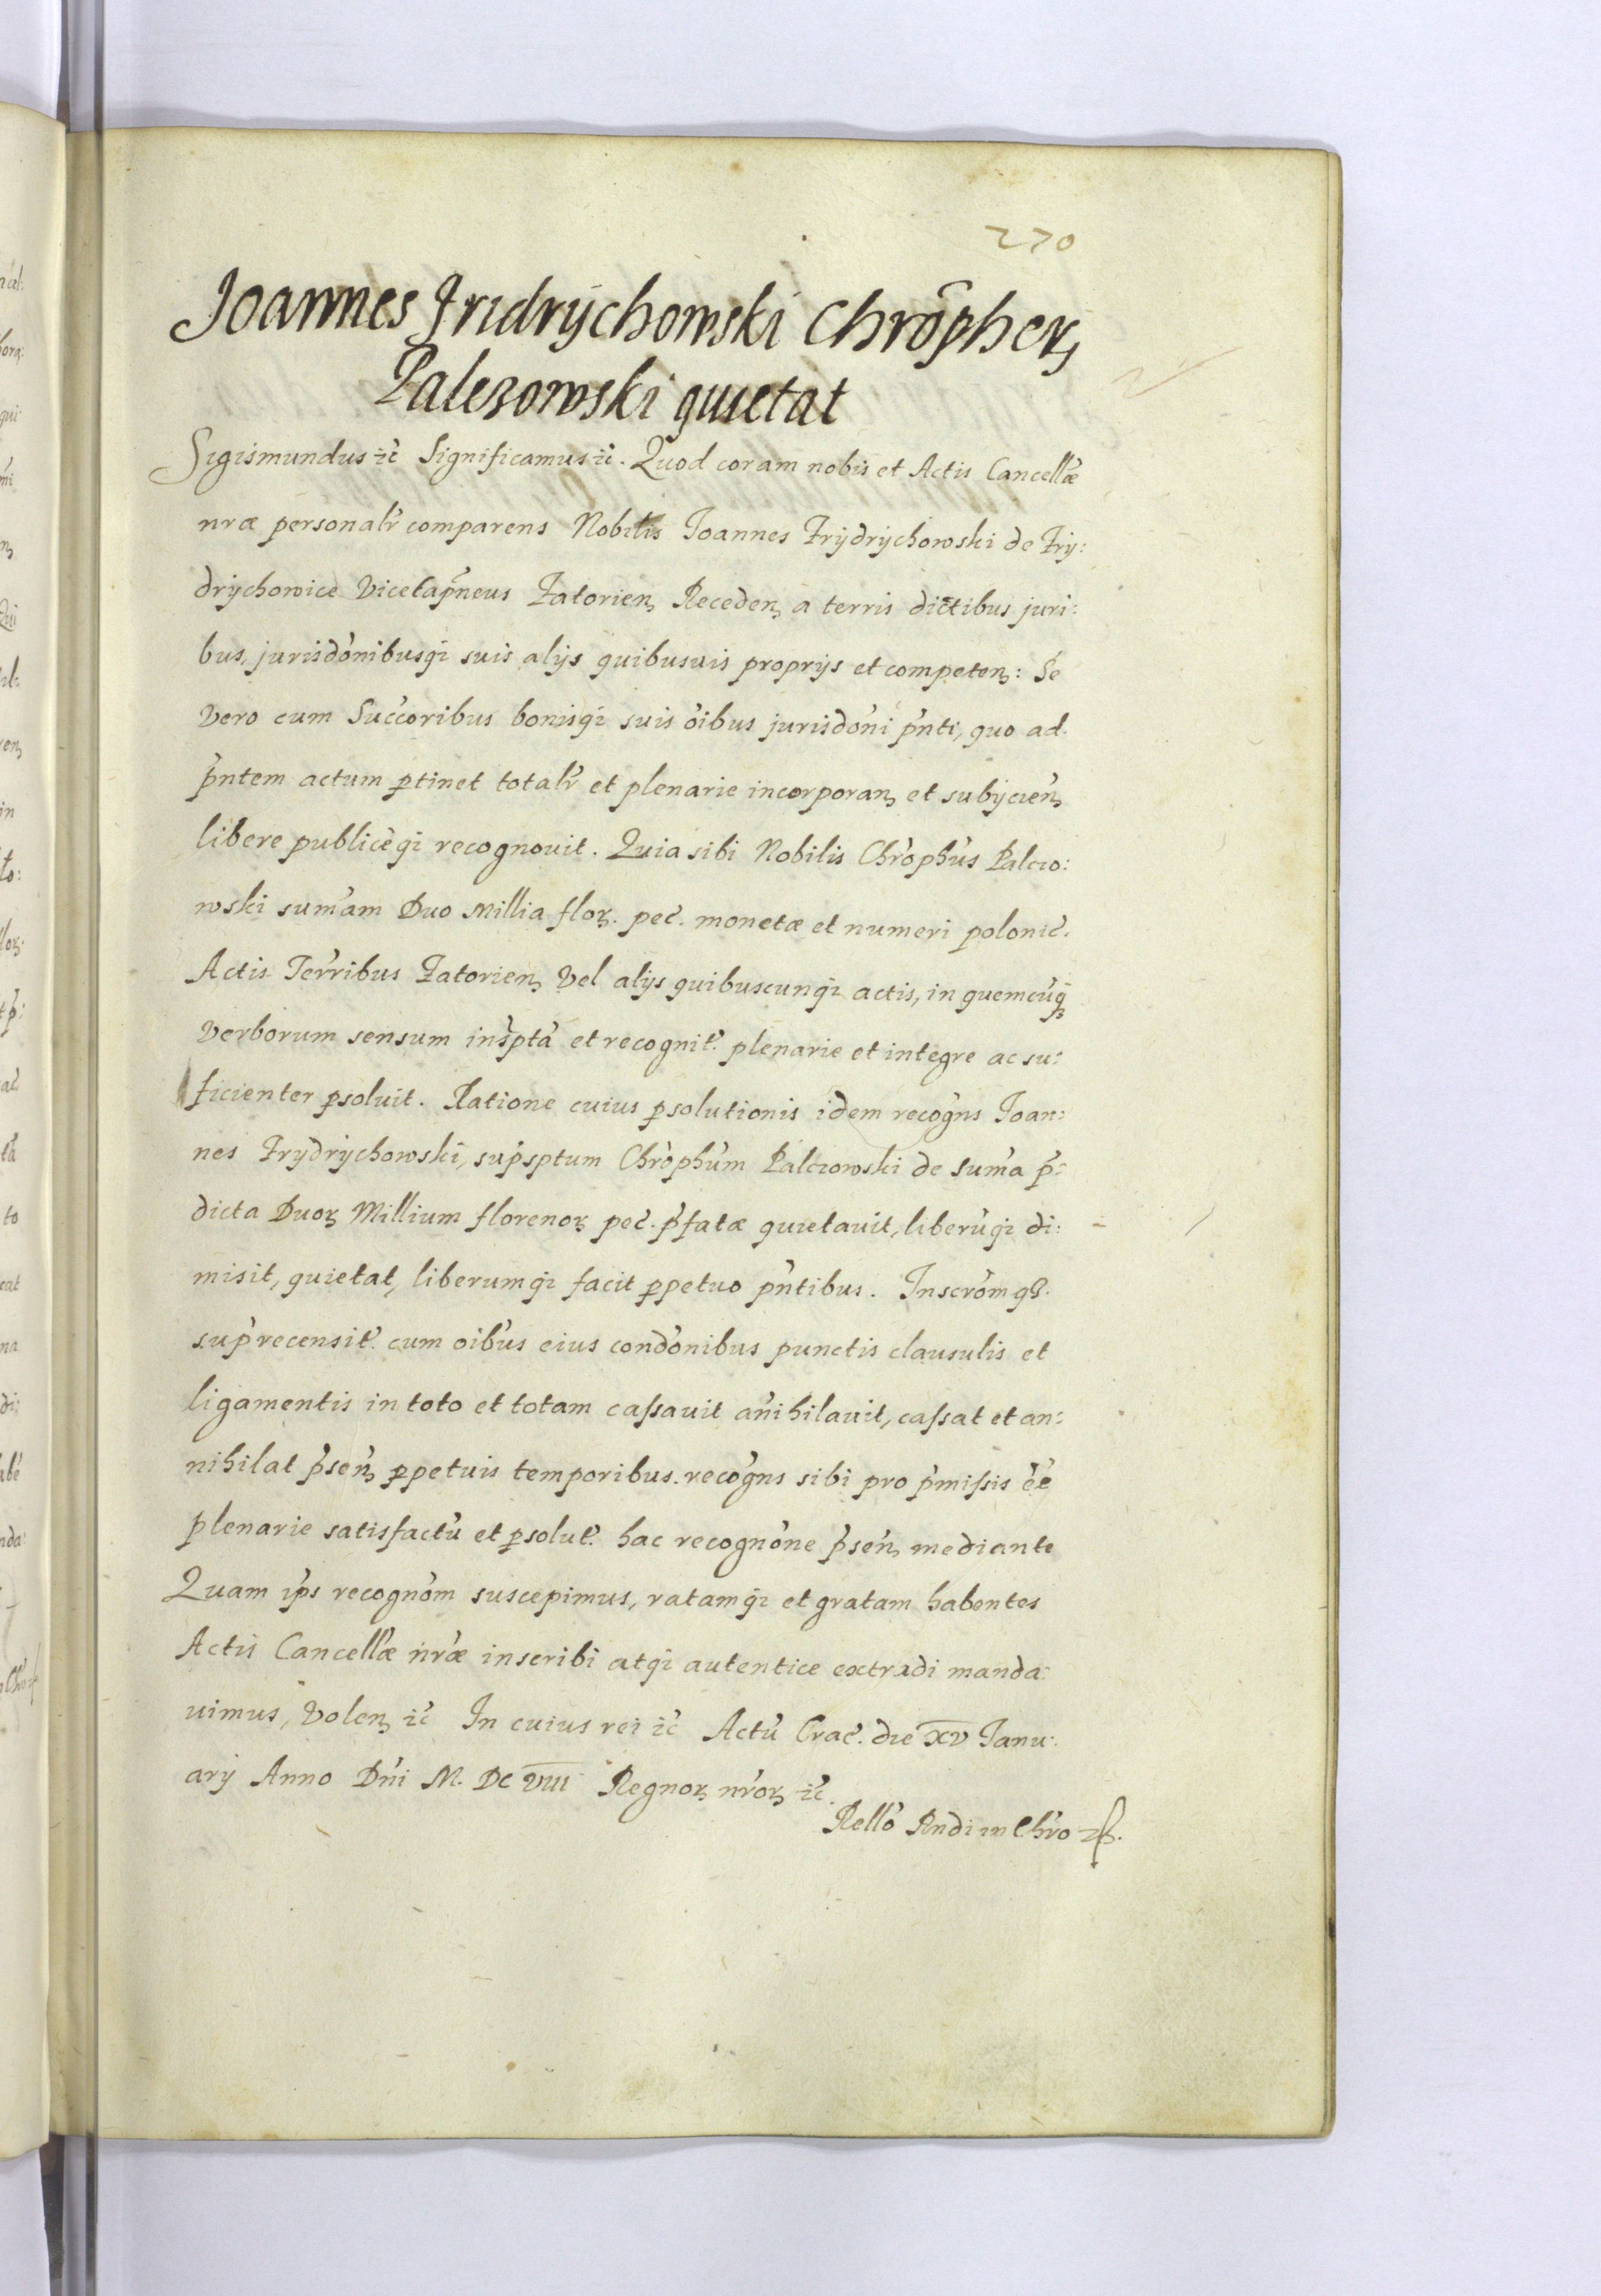 270
Joannes Fridrychowski Chrõpherz
Palczowski quietat
Sigismundus &c̃ Significamus &c̃. Quod coram nobis et Actis Cancellæ
nræ personalr̃ comparens Nobilis Joannes Frydrychowski de Fry:
drychowice Vicecap̃neus Zatorien̨ Receden̨ a terris dictibus juri:
bus, jurisdõnibusq̃ suis alijs quibusuis proprijs et competen̨: Se
Vero cum Succoribus bonisq̃ suis õibus jurisdõni p̃nti, quo ad
p̃ntem actum ꝑtinet totalr̃ et plenarie incorporan̨ et subijcien̨
libere publiceq̃ recognouit. Quia sibi Nobilis Chrõphus Palczo:
wski sum̃am Duo Millia floꝝ. pec̃. monetæ et numeri polonic̃.
Actis Terr̃ibus Zatorien̨ Vel alijs quibuscunq̃ actis, in quemcũq̃
Verborum sensum ins̃ptã et recognit̃. plenarie et integre ac su:
ficienter ꝑsoluit. Ratione cuius ꝑsolutionis idem recog̃ns Joan:
nes Frydrychowski, sup̃sptum Chrõphum Palczowski de sum̃a p̃:
dicta Duoꝝ Millium florenoꝝ pec̃. p̃fatæ quietauit, liberũq̃ di:
misit, quietat, liberumq̃ facit ꝑpetuo p̃ntibus. Inscrõmq̃
sup̃recensit̃. cum oibũs eius condõnibus punctis clausulis et
ligamentis in toto et totam cassauit añihilauit, cassat et an:
nihilat p̃sen̨ ꝑpetuis temporibus. recog̃ns sibi pro p̃missis ẽe
plenarie satisfactũ et ꝑsolut̃. hac recognõne p̃sen̨ mediante
Quam ip̃s recognõm suscepimus, ratamq̃ et gratam habentes
Actis Cancellæ nr̃æ inscribi atq̃ autentice extradi manda:
uimus, Volen̨ &c̃ In cuius rei &c̃ Actũ Crac̃. die XV Janu:
arij Anno Dñi M. DC VIII Regnoꝝ nr̃oꝝ &c̃.
Rellõ Rndi in Chrõ